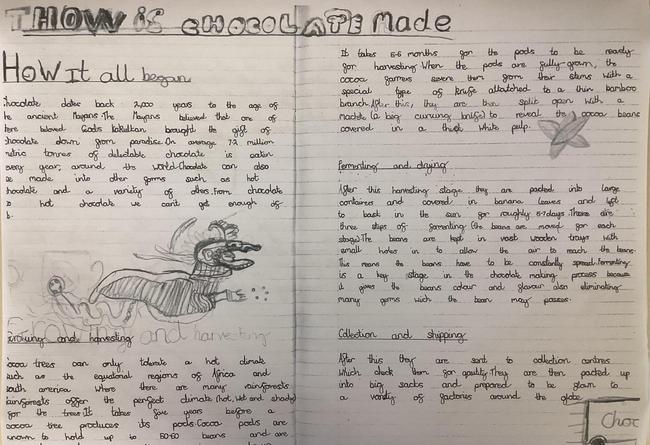 HOW is CHOCOLATE Made
How it all began
chocolate dates back 2,000 years to the age of
he ancient Mayans. The Mayans believed that one of
here beloved Gods brought the gift of
chocolate down from paradise. On average 7.2 million
metric tonnes of delectable chocolate is eaten
every year; around the world. Chocolate can also
be made into other forms such as hot
chocolate and a variety of others. From chocolate
to hot chocolate we cant get enough of
Growing and harvesting
Cocoa trees can only tolerate a hot climate
such as the equatorial regions of Africa and
South america where there are many rainforests.
Rainforests offer the perfect climate (hot, wet and shady)
for the trees. It takes five years before a
cocoa tree produces its pods. Cocoa pods are
known to hold up to 50-60 beans and are
It takes 5-6 months for the pods to be ready
for harvesting. When the pods are fully-grown, the
cocoa farmers severe them from their stems with a
special type of knife attatched to a thin bamboo
branch. After this, they are then split open with a
machete (a big curving knife) to reveal the cocoa beans
covered in a thick white pulp.
Fermenting and drying
After this harvesting stage they are packed into large
containers and covered in banana leaves and left
to bask in the sun for roughly 5-7 days. There are
three steps of fermenting (the beans are moved for each
stage). The beans are kept in vast wooden trays with
small holes in to allow the air to reach the beans.
This means the beans have to be constantly spread. Fermenting
is a key stage in the chocolate making process because
it gives the beans colour and flavour also eliminating
many germs wich the bean may posses.
Collection and shipping
After this they are sent to collection centres
which check them for quality. They are then packed up
into big sacks and prepared to be flown to
a variety of factories around the globe.
Choc